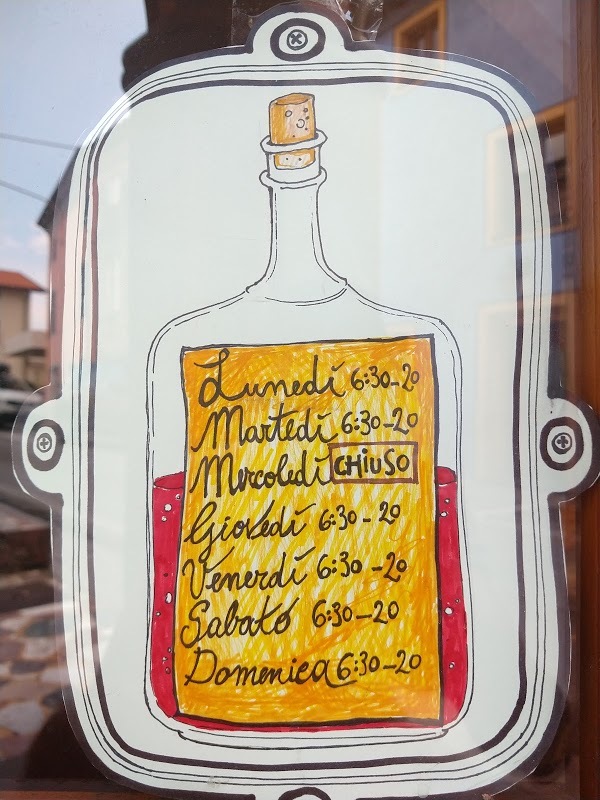 Lunedí 6:30-20
Martedí 6:30-20
Mercoledí CHIUSO
Giovedí 6:30-20
Venerdí 6:30-20
Sabato 6:30-20
Domenica 6:30-20